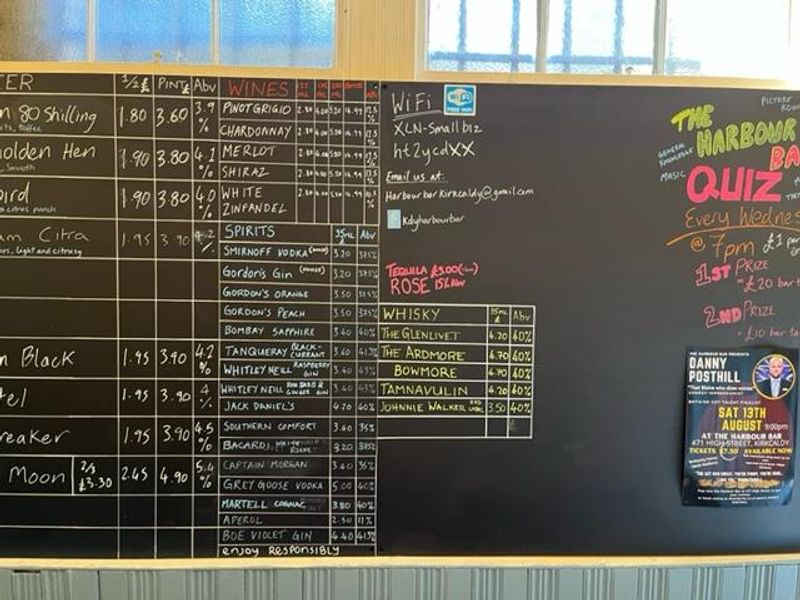 TER ½ £ PINT £ Abv
n 80 Shilling 1.80 3.60 3.9 %
olden Hen 1.90 3.80 4.1 %
Smooth
ird 1.90 3.80 4.0 %
citrus punch
am Citra 1.95 3.90 4.2 %
light and citrusy
n Black 1.95 3.90 4.2 %
tel 1.95 3.90 4 %
reaker 1.95 3.90 4.5 %
Moon 2/3 £3.30 2.45 4.90 5.4 %
WINES
PINOT GRIGIO
CHARDONNAY
MERLOT
SHIRAZ
WHITE
ZINFANDEL
SPIRITS 35ML £ Abv
SMIRNOFF VODKA (HOUSE) 3.20 37.5%
Gordon's Gin (HOUSE) 3.20 37.5%
GORDON'S ORANGE 3.50
GORDON'S PEACH 3.50
BOMBAY SAPPHIRE 3.40 40%
TANQUERAY BLACK-CURRANT 3.60
WHITLEY NEILL RASPBERRY GIN 3.40 43%
WHITLEY NEILL RHUBARB & GINGER GIN 3.40 43%
JACK DANIEL'S 4.20 40%
SOUTHERN COMFORT 3.40 35%
BACARDI 3.20
CAPTAIN MORGAN 3.40 35%
GREY GOOSE VODKA 5.00 40%
MARTELL COGNAC 3.80 40%
APEROL 2.30 11%
BOE VIOLET GIN 4.40 41.5%
enjoy RESPONSIBLY
WiFi
WiFi
FREE WIFI
XLN-Small biz
ht2ycdXX
Email us at:
Harbourbarkirkcaldy@gmail.com
f kdyharbourbar
TEQUILA £3.00
ROSE 15% Abv
WHISKY 35ML £ Abv
THE GLENLIVET 4.20 40%
THE ARDMORE 4.70 40%
BOWMORE 4.70 40%
TAMNAVULIN 4.20 40%
JOHNNIE WALKER RED LABEL 3.50 40%
PICTURE ROU
THE
HARBOUR
BA
GENERAL
KNOWLEDGE
MUSIC
QUIZ
Every Wednes
@ 7pm £1 per
1ST PRIZE
£20 bar t
2ND PRIZE
£10 bar ta
THE HARBOUR BAR PRESENTS
DANNY
POSTHILL
SAT 13TH
AUGUST 9:00pm
AT THE HARBOUR BAR
471 HIGH STREET, KIRKCALDY
TICKETS £7.50 AVAILABLE NOW